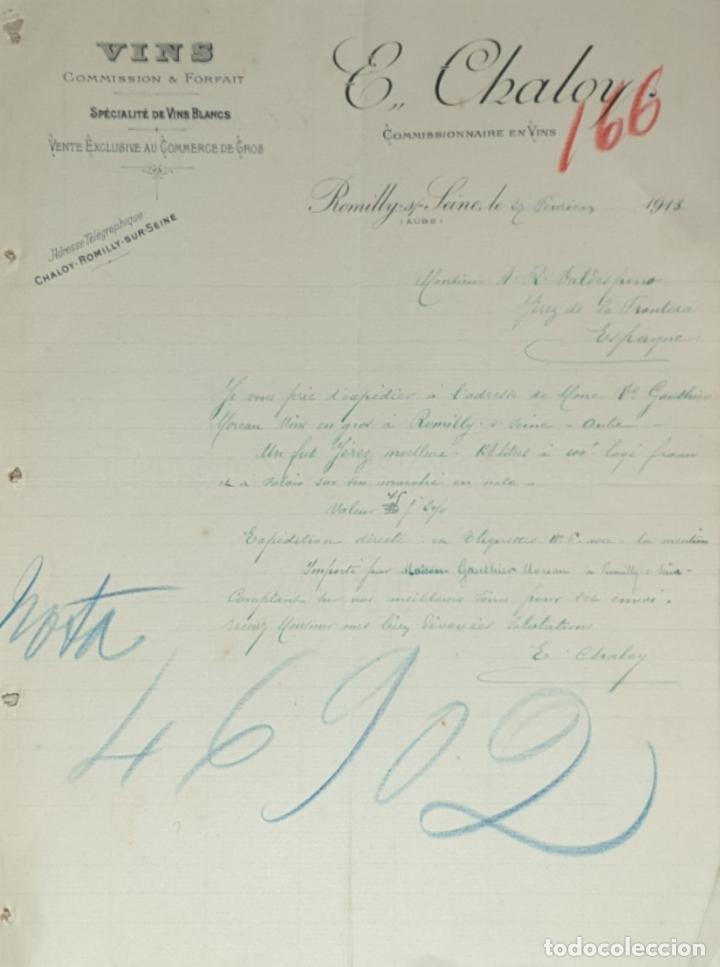 VINS
COMMISSION & FORFAIT
SPÉCIALITÉ DE VINS BLANCS
VENTE EXCLUSIVE AU COMMERCE DE GROS
E. Chaloy
COMMISSIONNAIRE EN VINS
166
Romilly-s/-Seine, le 27 Février 1913
(AUBE)
Adresse Télégraphique
CHALOY-ROMILLY-SUR-SEINE
Monsieur A. R. Valdespino
Jerez de la Frontera
Espagne
Je vous prie d'expédier à l'adresse de Mme Vve Gauthier
Moreau Vins en gros à Romilly-s-Seine - Aube -
Un fut Jérez moelleux à 100f logé
à valoir sur son marché en note -
Valeur
Expédition directe et Etiquettes avec la mention
Importé par Maison Gauthier Moreau à Romilly-s-Seine -
Comptant sur vos meilleurs soins pour cet envoi.
recevez Monsieur mes bien dévouées salutations
E. Chaloy
Nota
46902
todocoleccion.net